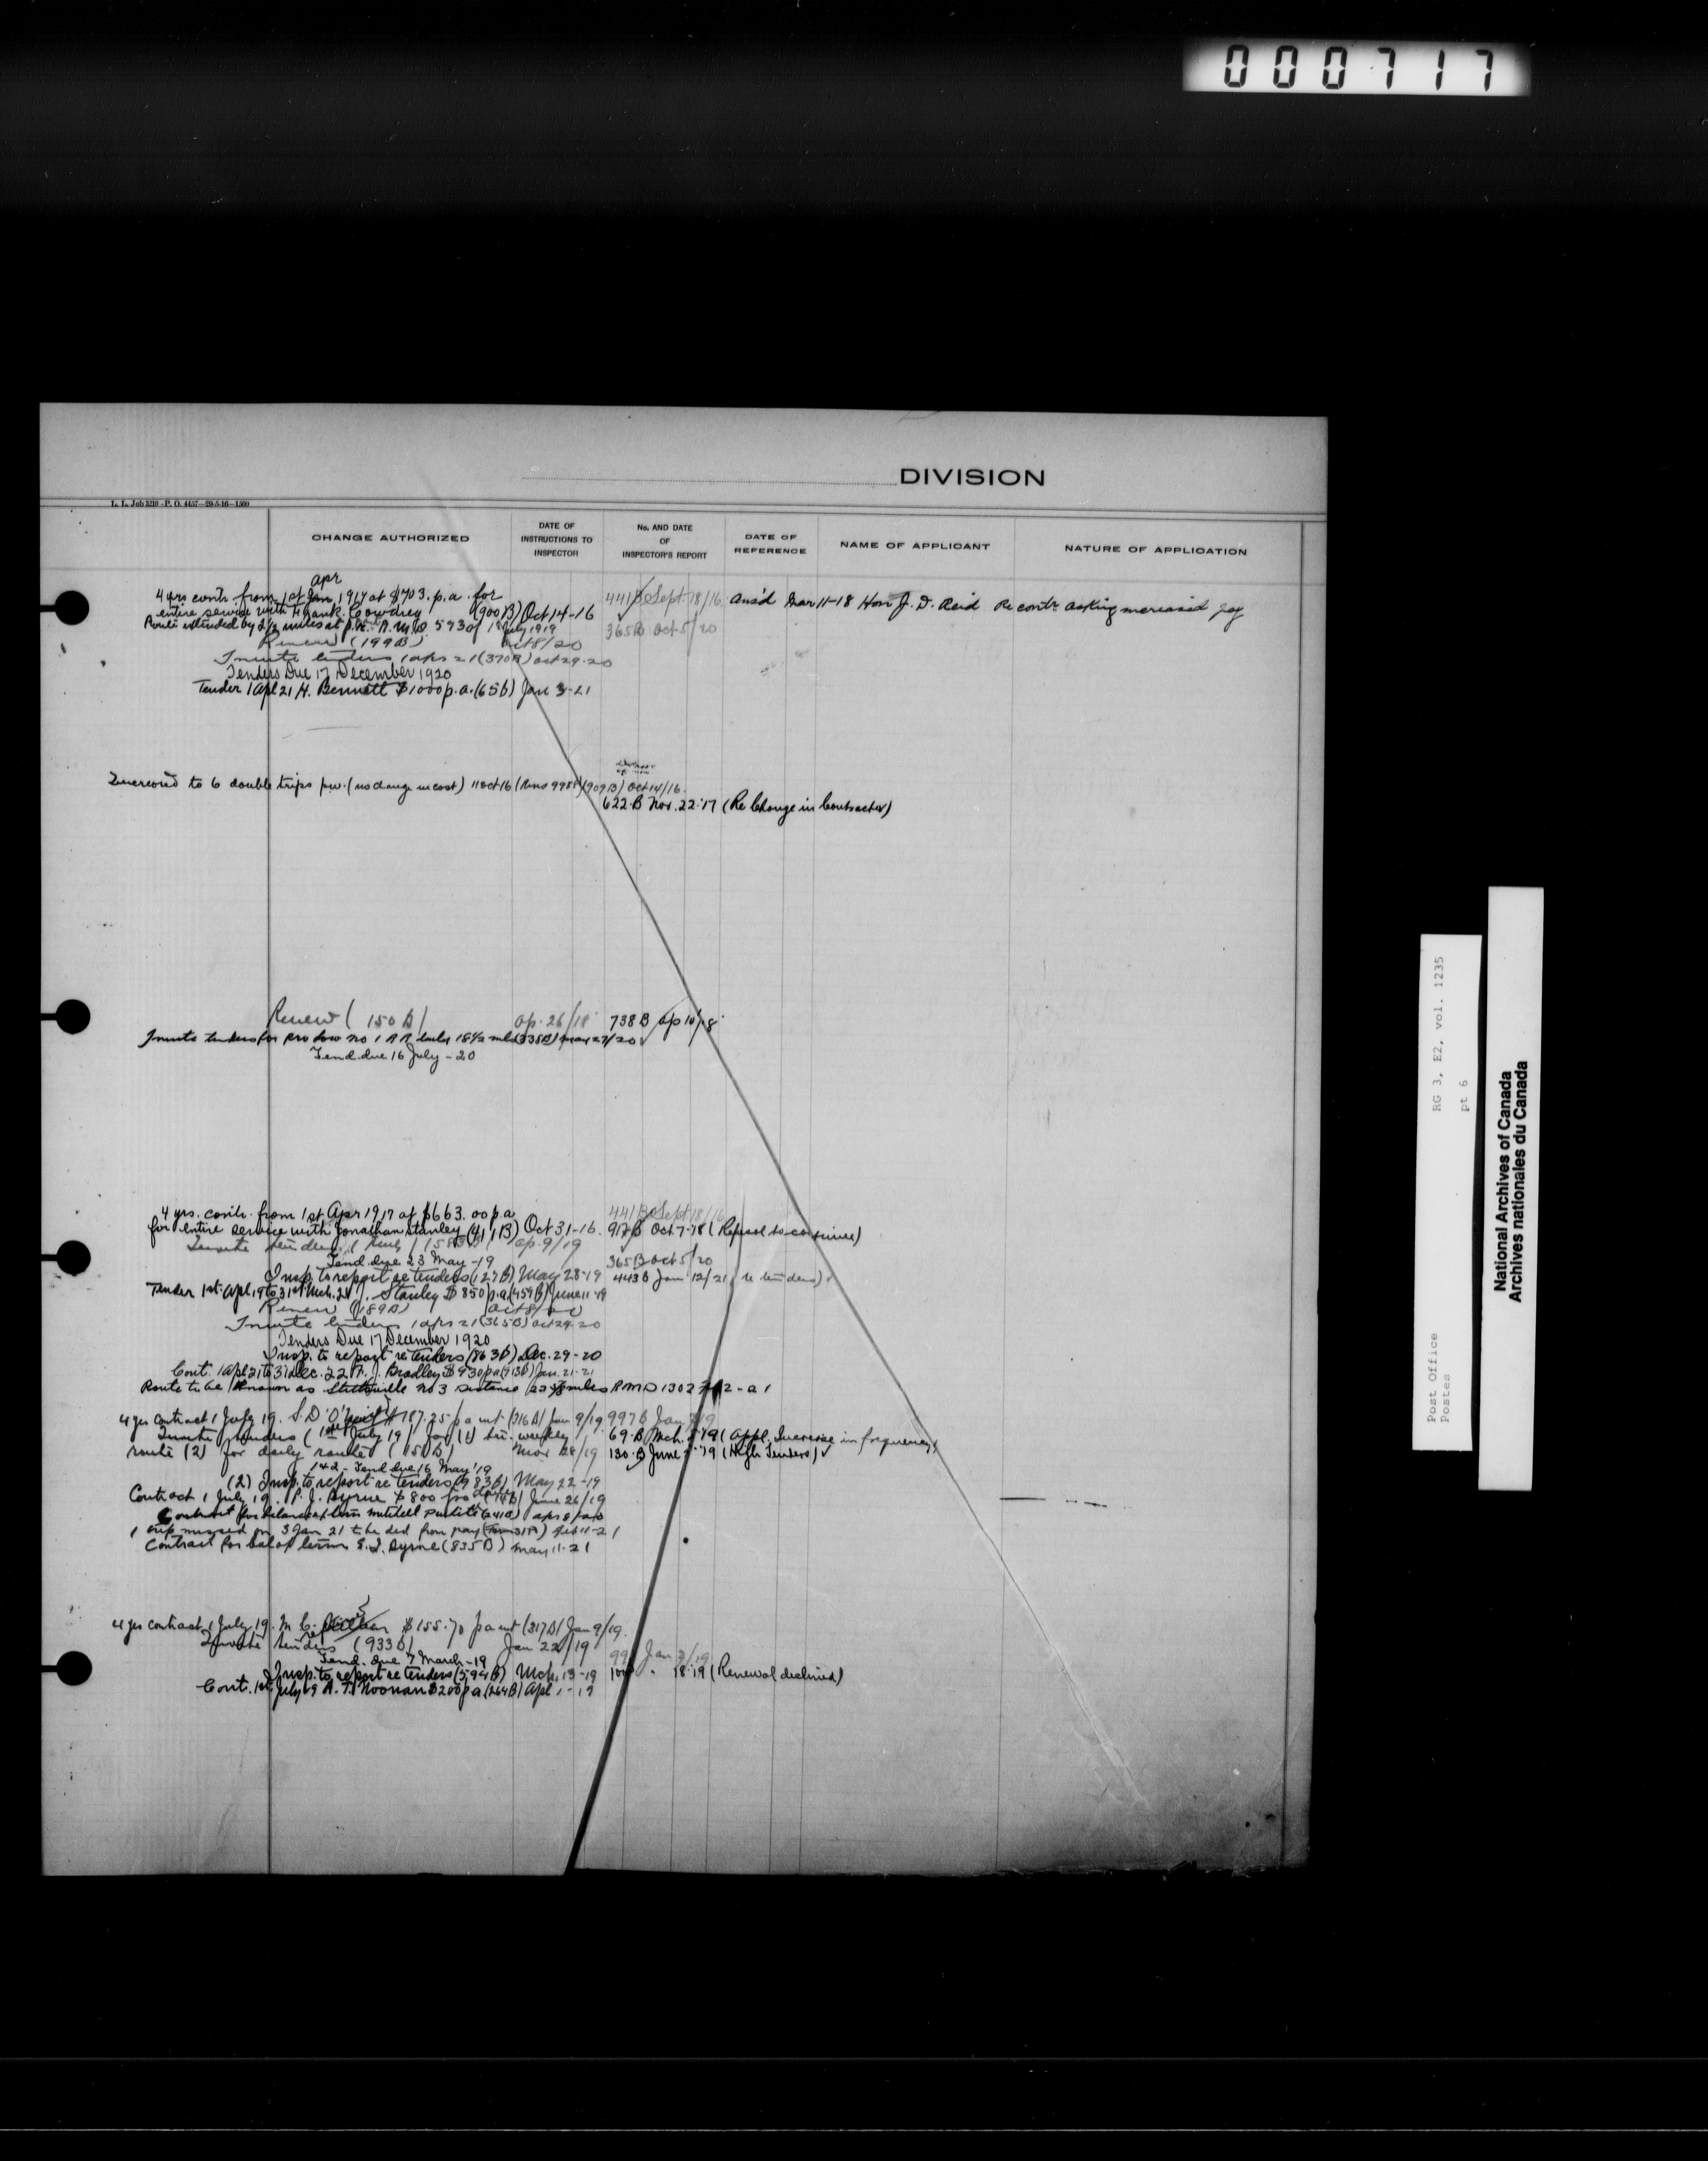 000717
DIVISION
L. L. Job 3210 - P. O. 4457—29-5-16—1500
CHANGE AUTHORIZED
DATE OF INSTRUCTIONS TO INSPECTOR
No. AND DATE OF INSPECTOR'S REPORT
DATE OF REFERENCE
NAME OF APPLICANT
NATURE OF APPLICATION
apr
4 yrs contr. from 1st Jan 1917 at $703. p.a. for 441 B Sept 18/16 Ans'd Mar 11-18 Hon J. D. Reid Re contr. asking increased pay
entire service with Frank Cowdrey (900 B) Oct 14-16
Route extended by 2½ miles at R.M.D. 5930 1st July 1919 365 B Oct 5/20
Renew (199 B) Oct 8/20
Invite tenders 1 apr 21 (370 B) Oct 29-20
Tenders Due 17 December 1920
Tender 1 Apl 21 H. Bennett $1000 p.a. (65 b) Jan 3-21
Increased to 6 double trips p.w. (no change in cost) 11 Oct 16 (909 B) Oct 14/16
622 B Nov. 22-17 (Re Change in Contractor)
Renew (150 B) Ap. 26/18 738 B Ap 10/18
Invite tenders for 18½ mls (338 B) May 27/20
Tend. due 16 July - 20
4 yrs. contr. from 1st Apr 1917 at $663.00 p.a 441 B Sept 18/16
for entire service with Jonathan Stanley (411 B) Oct 31-16. 917 B Oct 7-18 (Refusal to continue)
Invite tenders ap. 9/19
Tend. due 23 May -19 365 B Oct 5/20
Insp. to report re tenders (127 B) May 28-19 443 b Jan 12/21 (re tenders)
Tender 1st Apl. 19 to 31st Mch. 21 J. Stanley $850 p.a. (459 B) June 11-19
Renew (189 B) Oct 8/20
Invite tenders 1 apr 21 (365 B) Oct 29-20
Tenders Due 17 December 1920
Insp. to report re tenders (863 b) Dec. 29-20
Cont. 1 Apl 21 to 31 Dec. 22 F. J. Bradley $930 p.a (913 B) Jan. 21-21
Route to be known as Stittsville No 3 Distance miles RMD 1302
4 yrs contract 1 July 19. S. D. O'Neill $787.25 p a (316 B) Jan 9/19 997 B Jan
Invite tenders (1st July 19) for (1) tri-weekly 69-B Mch. -19 (Appl. Increase in frequency)
route (2) for daily route (150 B) Mar 28/19 130-B June -19 (High Tenders)
1 & 2 - Tend due 16 May '19
(2) Insp. to report re tenders (983 b) May 22-19
Contract 1 July 19. P. J. Byrne $800 June 26/19
Contract for balance of term Mitchell (241 B) apr 8/20
1 trip missed on 3 Jan 21 to be ded from pay Feb 11-21
Contract for bal of term E. J. Byrne (835 B) May 11-21
4 yrs contract 1 July 19. M. C. $155.70 p a (317 B) Jan 9/19.
Invite tenders (933 b) Jan 22/19
Tend. due 7 March -19 Jan 3/19
Insp. to report re tenders (594 B) Mch. 13-19 18-19 (Renewal declined)
Cont. 1st July 19 A. T. Noonan $200 p a (264 B) Apl 1-19
RG 3, E2, vol. 1235
pt 6
Post Office
Postes
National Archives of Canada
Archives nationales du Canada